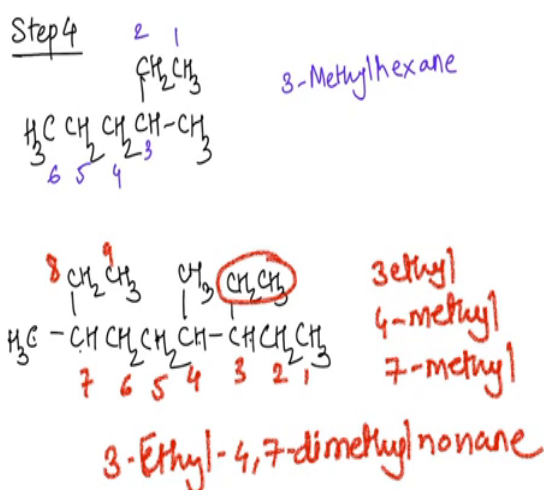 Step 4
2 1
CH2CH3
3-Methylhexane
H3C CH2 CH2 CH-CH3
6 5 4 3
8 9
CH2CH3 CH3 CH2CH3
3ethyl
H3C - CH CH2CH2 CH-CHCH2CH3
4-methyl
7 6 5 4 3 2 1
7-methyl
3-Ethyl-4,7-dimethylnonane